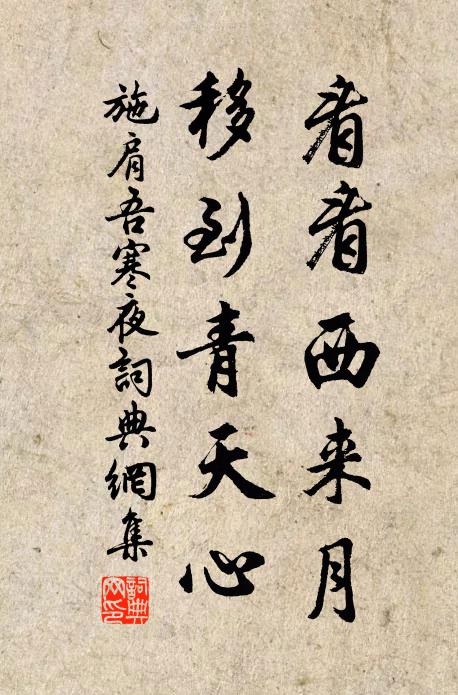 看看西来月
移到青天心
施肩吾寒夜詞典網集
詞典
网印